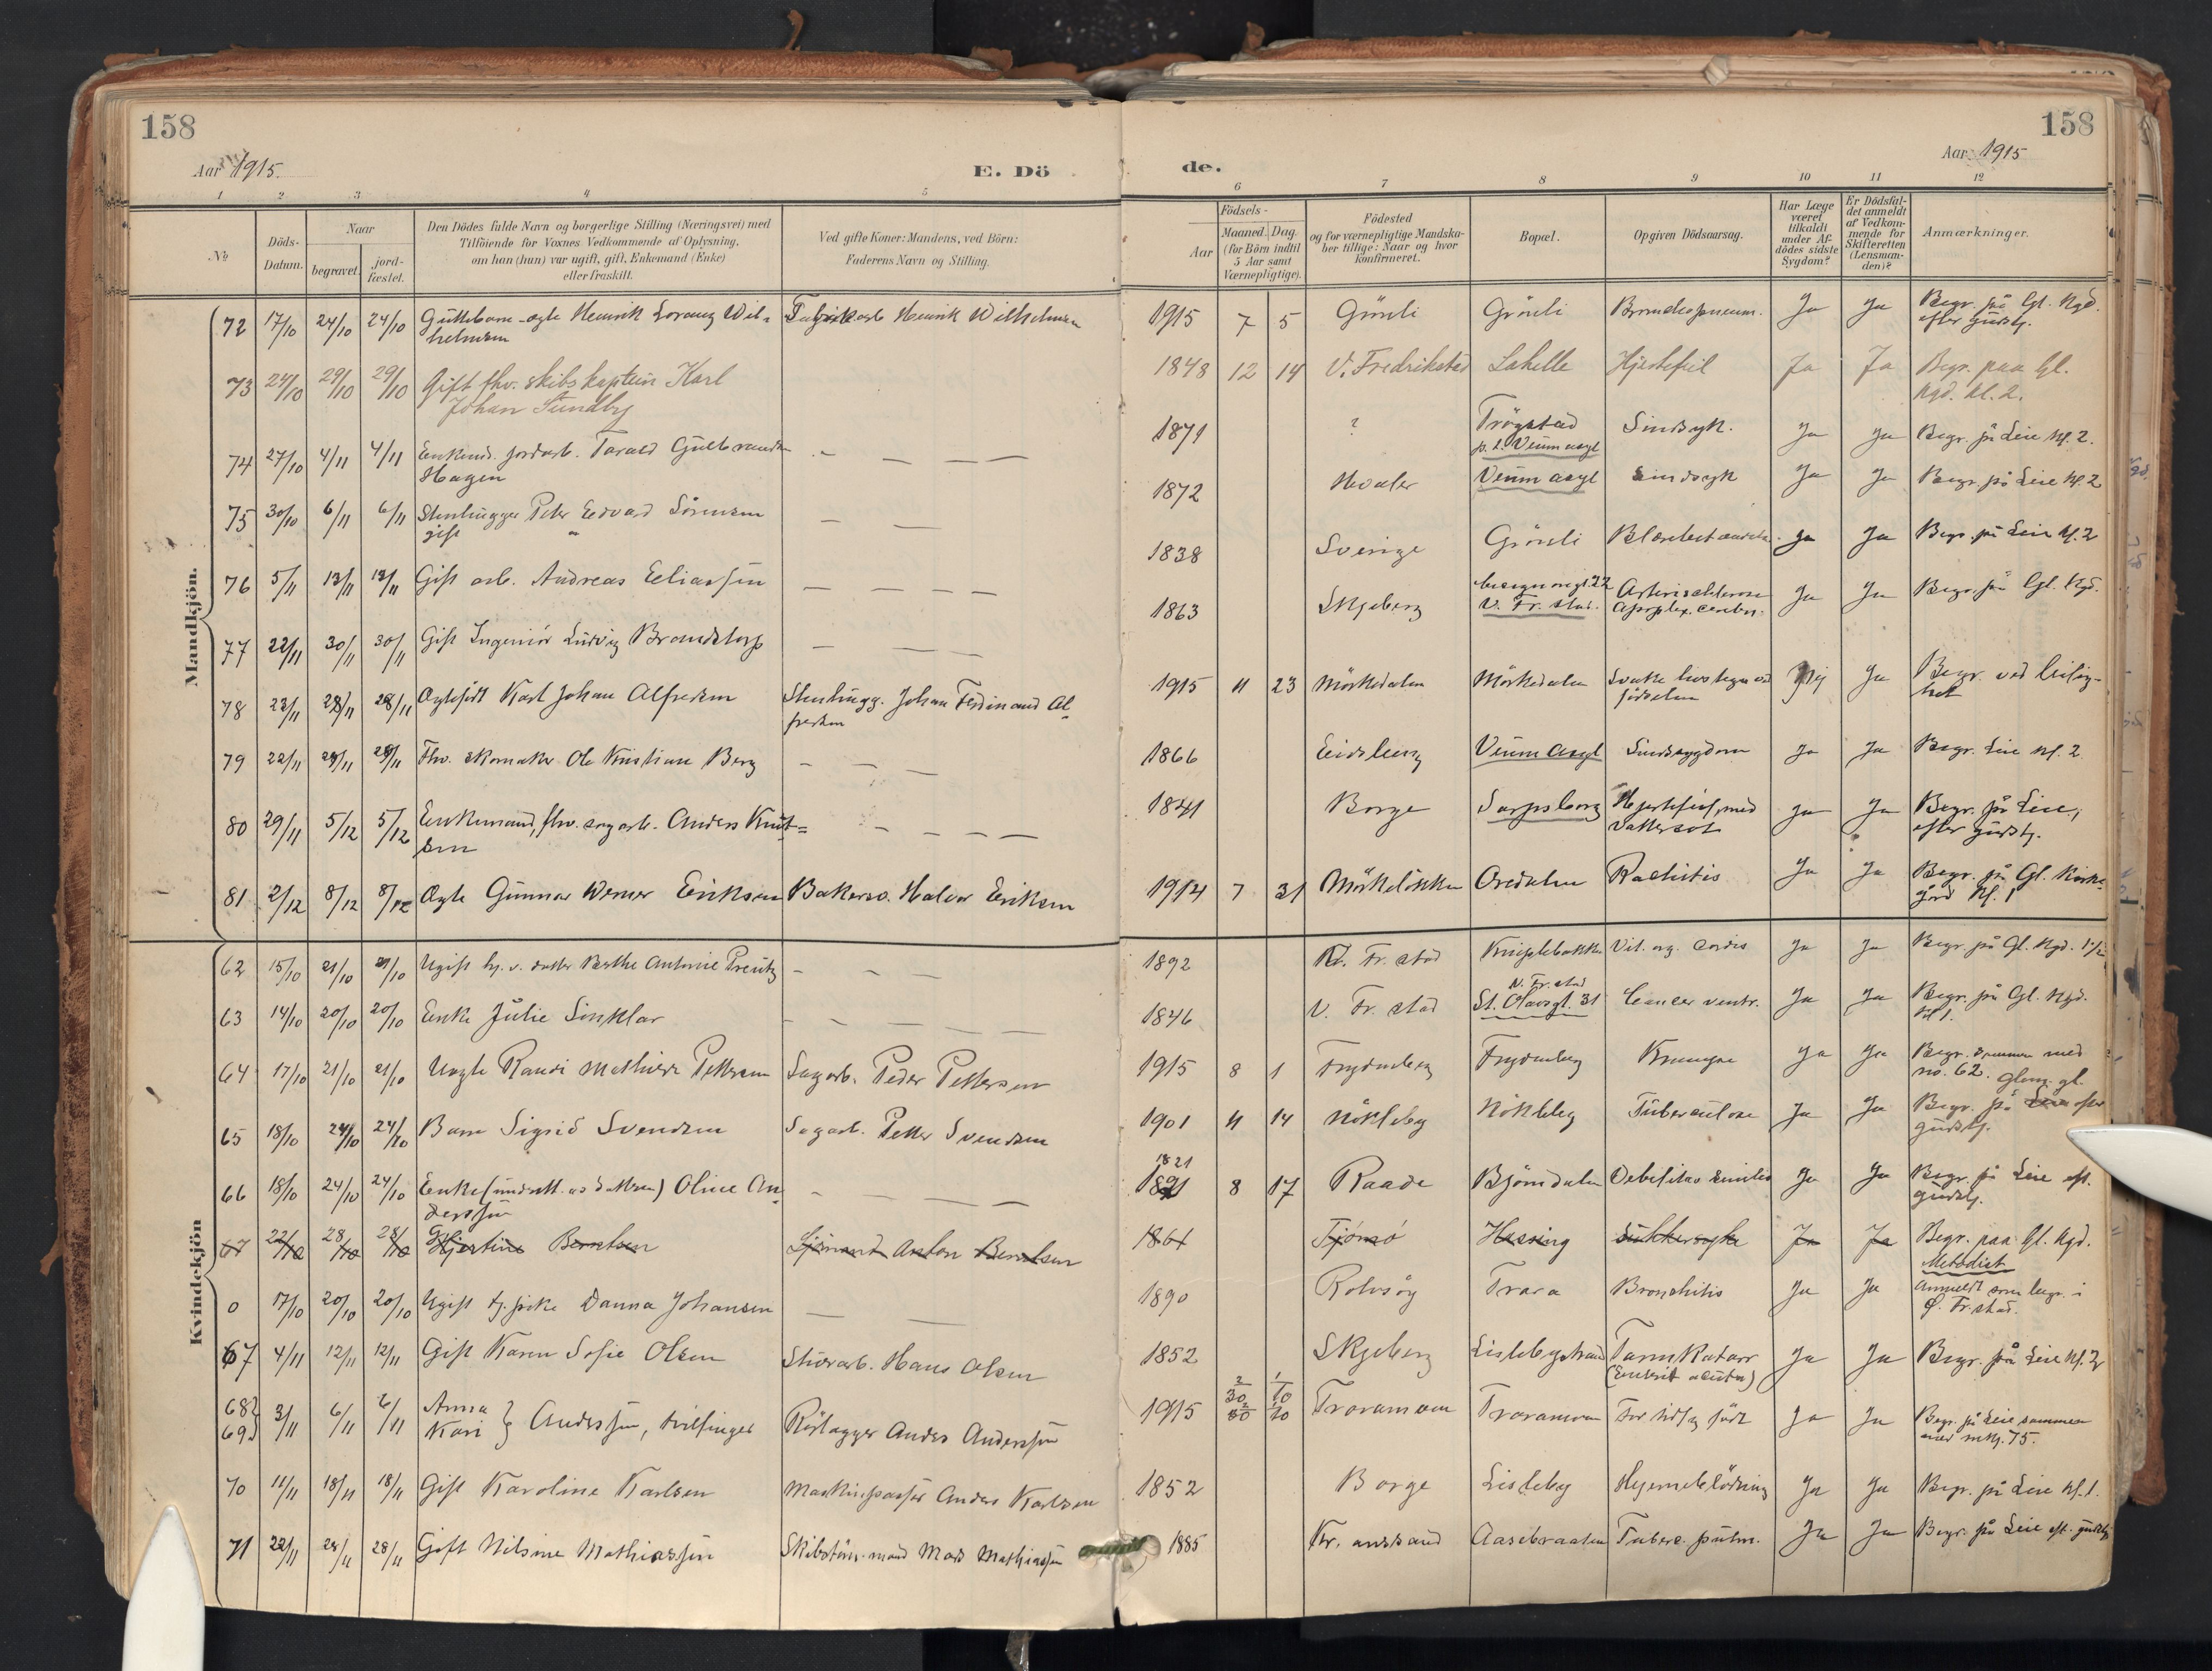 158
158
Aar 1915.
E. Dö
de.
Aar 1915
1 2 3 4 5 6 7 8 9 10 11 12
№
Döds-
Datum.
Naar
begravet.
jord-
fæstet.
Den Dödes fulde Navn og borgerlige Stilling (Næringsvei) med
Tilföiende for Voxnes Vedkommende af Oplysning,
om han (hun) var ugift, gift, Enkemand (Enke)
eller fraskilt.
Ved gifte Koner: Mandens, ved Börn:
Faderens Navn og Stilling.
Födsels-
Aar
Maaned. Dag.
(for Börn indtil
5 Aar samt
Værnepligtige).
Födested
og for værnepligtige Mandska-
ber tillige: Naar og hvor
konfirmeret.
Bopæl.
Opgiven Dödsaarsag.
Har Læge
været
tilkaldt
under Af-
dödes sidste
Sygdom?
Er Dödsfal-
det anmeldt
af Vedkom-
mende for
Skifteretten
(Lensman-
den)?
Anmærkninger.
Mandkjön.
72 17/10 24/10 24/10 Guttebarn - ægte Henrik Lorang Wil- Fabrikarb Henrik Wilhelmsen 1915 7 5 Grönli Grönli Bronchopneum. Ja Ja Begr. på Gl. Kgd.
helmsen efter gudstj.
73 24/10 29/10 29/10 Gift fhv. skibskaptein Karl 1848 12 14 V. Fredrikstad Lahelle Hjertefeil Ja Ja Begr. paa Gl.
Johan Sundby kgd. kl. 2.
74 27/10 4/11 4/11 Enkem. jordarb. Tarald Gulbrandsen — — — 1871 ? Trögstad Sindsyk. Ja Ja Begr. på Leie kl. 2.
Hagen p. t. Veum asyl
75 30/10 6/11 6/11 Stenhugger Peter Edvard Sörensen — — 1872 Hvaler Veum asyl Sindssyk Ja Ja Begr. på Leie kl. 2
gift
76 5/11 13/11 13/11 Gift arb. Andreas Eliassen — — — — 1838 Sverige Grönli Ja Ja Begr. på Leie kl. 2
77 22/11 30/11 30/11 Gift Ingeniör Ludvig Brandstorp — — — 1863 Skjeberg 22 Arteriosklerose Ja Ja Begr. på Gl. Kgd.
V. Fr. stad. apoplex. cerebri.
78 23/11 28/11 28/11 Ægtefödt Karl Johan Alfredsen Stenhugg. Johan Ferdinand Al- 1915 11 23 Mörkedalen Mörkedalen Svake livstegn ved Nej Ja Begr. ved leilig-
fredsen födselen het
79 22/11 29/11 29/11 Fhv. skomaker Ole Kristian Berg — — — 1866 Eidsberg Veum Asyl Sindssygdom Ja Ja Begr. Leie kl. 2
80 29/11 5/12 5/12 Enkemand, fhv. sagarb. Anders Knut- — — — — 1841 Borge Sarpsborg Hjertefeil, med Ja Ja Begr. på Leie,
sen Vattersot efter gudstj.
81 2/12 8/12 8/12 Ægte Gunnar Werner Eriksen Bakersv. Halvor Eriksen 1914 7 31 Mörkelökken Oredalen Rachitis Ja Ja Begr. på Gl. Kirke-
gård kl. 1
Kvindekjön
62 15/10 21/10 21/10 Ugift hj. v. datter Berthe Antonie Preutz — — — 1892 V. Fr. stad Kniplebakken Vit. org. cordis Ja Ja Begr. på Gl. Kgd. 1 1/2
63 14/10 20/10 20/10 Enke Julie Sinklar — — — — — 1846 V. Fr. stad V. Fr. stad
St. Olavsgt. 31 Cancer ventr. Ja Ja Begr. på Gl. Kgd.
kl 1.
64 17/10 21/10 21/10 Uægte Randi Mathilde Pettersen Sagarb. Peder Pettersen 1915 8 1 Frydenberg Frydenberg Krampe Ja Ja Begr. sammen med
no. 62. Glem. gl.
65 18/10 24/10 24/10 Barn Sigrid Svendsen Sagarb. Petter Svendsen 1901 11 14 Nökleby Nökleby Tuberculose Ja Ja Begr. på Leie efter
gudstj.
66 18/10 24/10 24/10 Enke (underh. av datteren) Oline An- — — — 1821
1891 8 17 Raade Björndalen Debelitas senilis Ja Ja Begr. på Leie eft.
derssen gudstj.
67 22/10 28/10 28/10 Gjertine Berntsen Sjömand Anton Berntsen 1861 Tjömö Hassing Sukkersyke Ja Ja Begr. paa Gl. kgd.
Metodist
0 17/10 20/10 20/10 Ugift tj. pike Danna Johansen — — 1890 Rolvsöy Trara Bronchitis Ja Ja Anmeldt som begr. i
Ø. Fr. stad.
67 4/11 12/11 12/11 Gift Karen Sofie Olsen Stuerarb. Hans Olsen 1852 Skjeberg Lislebystrand Tarmkatarr Ja Ja Begr. på Leie kl. 2
(Enterit acuta)
68 Anna
69 3/11 6/11 6/11 Kari } Anderssen, tvillinger Rörlægger Anders Anderssen 1915 2/30 1/10
Traramoen Traramoen For tidlig födt Ja Ja Begr. på Leie sammen
med mkj. 75.
70 11/11 18/11 18/11 Gift Karoline Karlsen Maskinpasser Anders Karlsen 1852 Borge Lisleby Hjerneblödning Ja Ja Begr. på Leie kl. 1.
71 22/11 28/11 28/11 Gift Nilsine Mathiassen Skibstöm. mand Mads Mathiassen 1885 Kr. anssand Aasebraaten Tuberc. pulm. Ja Ja Begr. på Leie eft. gudstj.